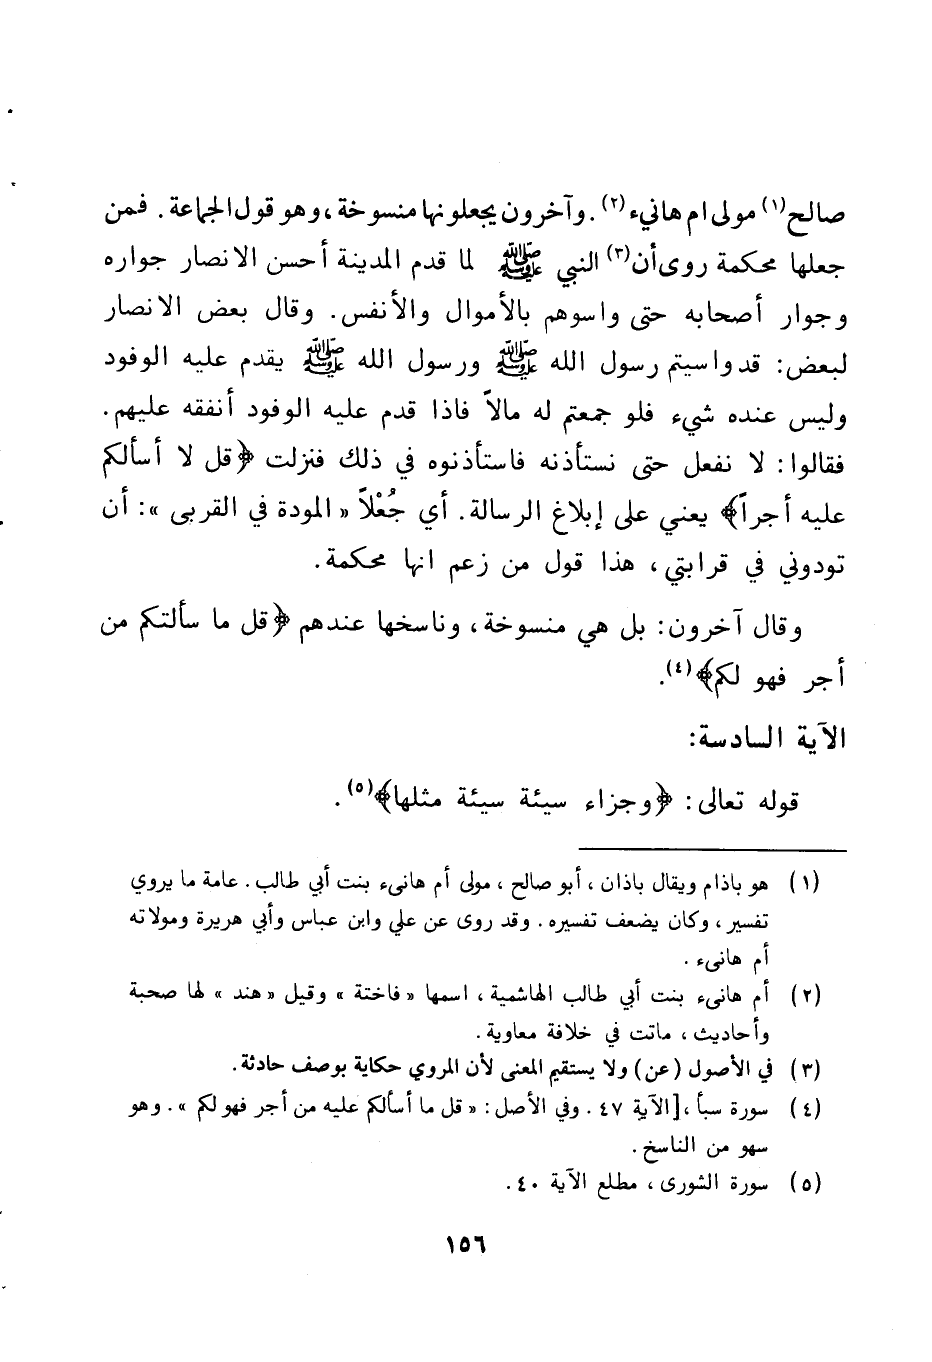 صالح(١) مولى ام هانيء(٢). وآخرون يجعلونها منسوخة، وهو قول الجماعة. فمن
جعلها محكمة روى أن(٣) النبي ﷺ لما قدم المدينة أحسن الانصار جواره
وجوار أصحابه حتى واسوهم بالأموال والأنفس. وقال بعض الانصار
لبعض: قد واسيتم رسول الله ﷺ ورسول الله ﷺ يقدم عليه الوفود
وليس عنده شيء فلو جمعتم له مالاً فاذا قدم عليه الوفود أنفقه عليهم.
فقالوا: لا نفعل حتى نستأذنه فاستأذنوه في ذلك فنزلت ﴿قل لا أسألكم
عليه أجراً﴾ يعني على إبلاغ الرسالة. أي جُعْلاً « المودة في القربى »: أن
تودوني في قرابتي، هذا قول من زعم انها محكمة.
وقال آخرون: بل هي منسوخة، وناسخها عندهم ﴿قل ما سألتكم من
أجر فهو لكم﴾(٤).
الآية السادسة:
قوله تعالى: ﴿وجزاء سيئة سيئة مثلها﴾(٥).
(١) هو باذام ويقال باذان، أبو صالح، مولى أم هانىء بنت أبي طالب. عامة ما يروي
تفسير، وكان يضعف تفسيره. وقد روى عن علي وابن عباس وأبي هريرة ومولاته
أم هانىء.
(٢) أم هانىء بنت أبي طالب الهاشمية، اسمها « فاختة » وقيل « هند » لها صحبة
وأحاديث، ماتت في خلافة معاوية.
(٣) في الأصول (عن) ولا يستقيم المعنى لأن المروي حكاية بوصف حادثة.
(٤) سورة سبأ، [الآية ٤٧. وفي الأصل: « قل ما أسألكم عليه من أجر فهو لكم ». وهو
سهو من الناسخ.
(٥) سورة الشورى، مطلع الآية ٤٠.
١٥٦